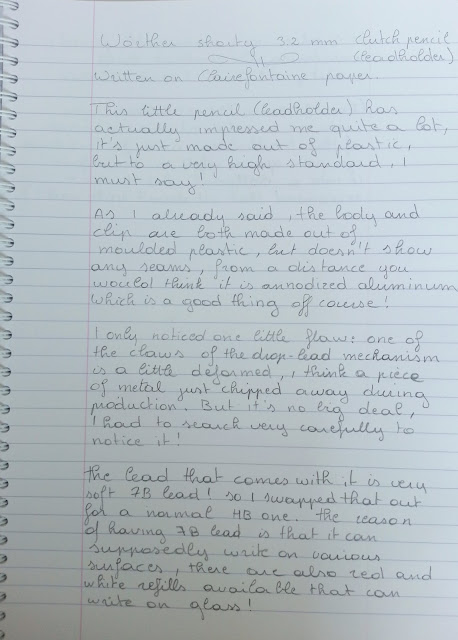 Wörther shorty 3.2 mm clutch pencil
(leadholder)
Written on Clairefontaine paper
This little pencil (leadholder) has
actually impressed me quite a lot,
it's just made out of plastic,
but to a very high standard, I
must say!
As I already said, the body and
clip are both made out of
moulded plastic, but doesn't show
any seams, from a distance you
would think it is annodized aluminum
which is a good thing off course!
I only noticed one little flaw: one of
the claws of the drop-lead mechanism
is a little deformed, I think a piece
of metal just chipped away during
production. But it's no big deal,
I had to search very carefully to
notice it!
The lead that comes with it is very
soft 7B lead! so I swapped that out
for a normal HB one. The reason
of having 7B lead is that it can
supposedly write on various
surfaces, there are also red and
white refills available that can
write on glass!